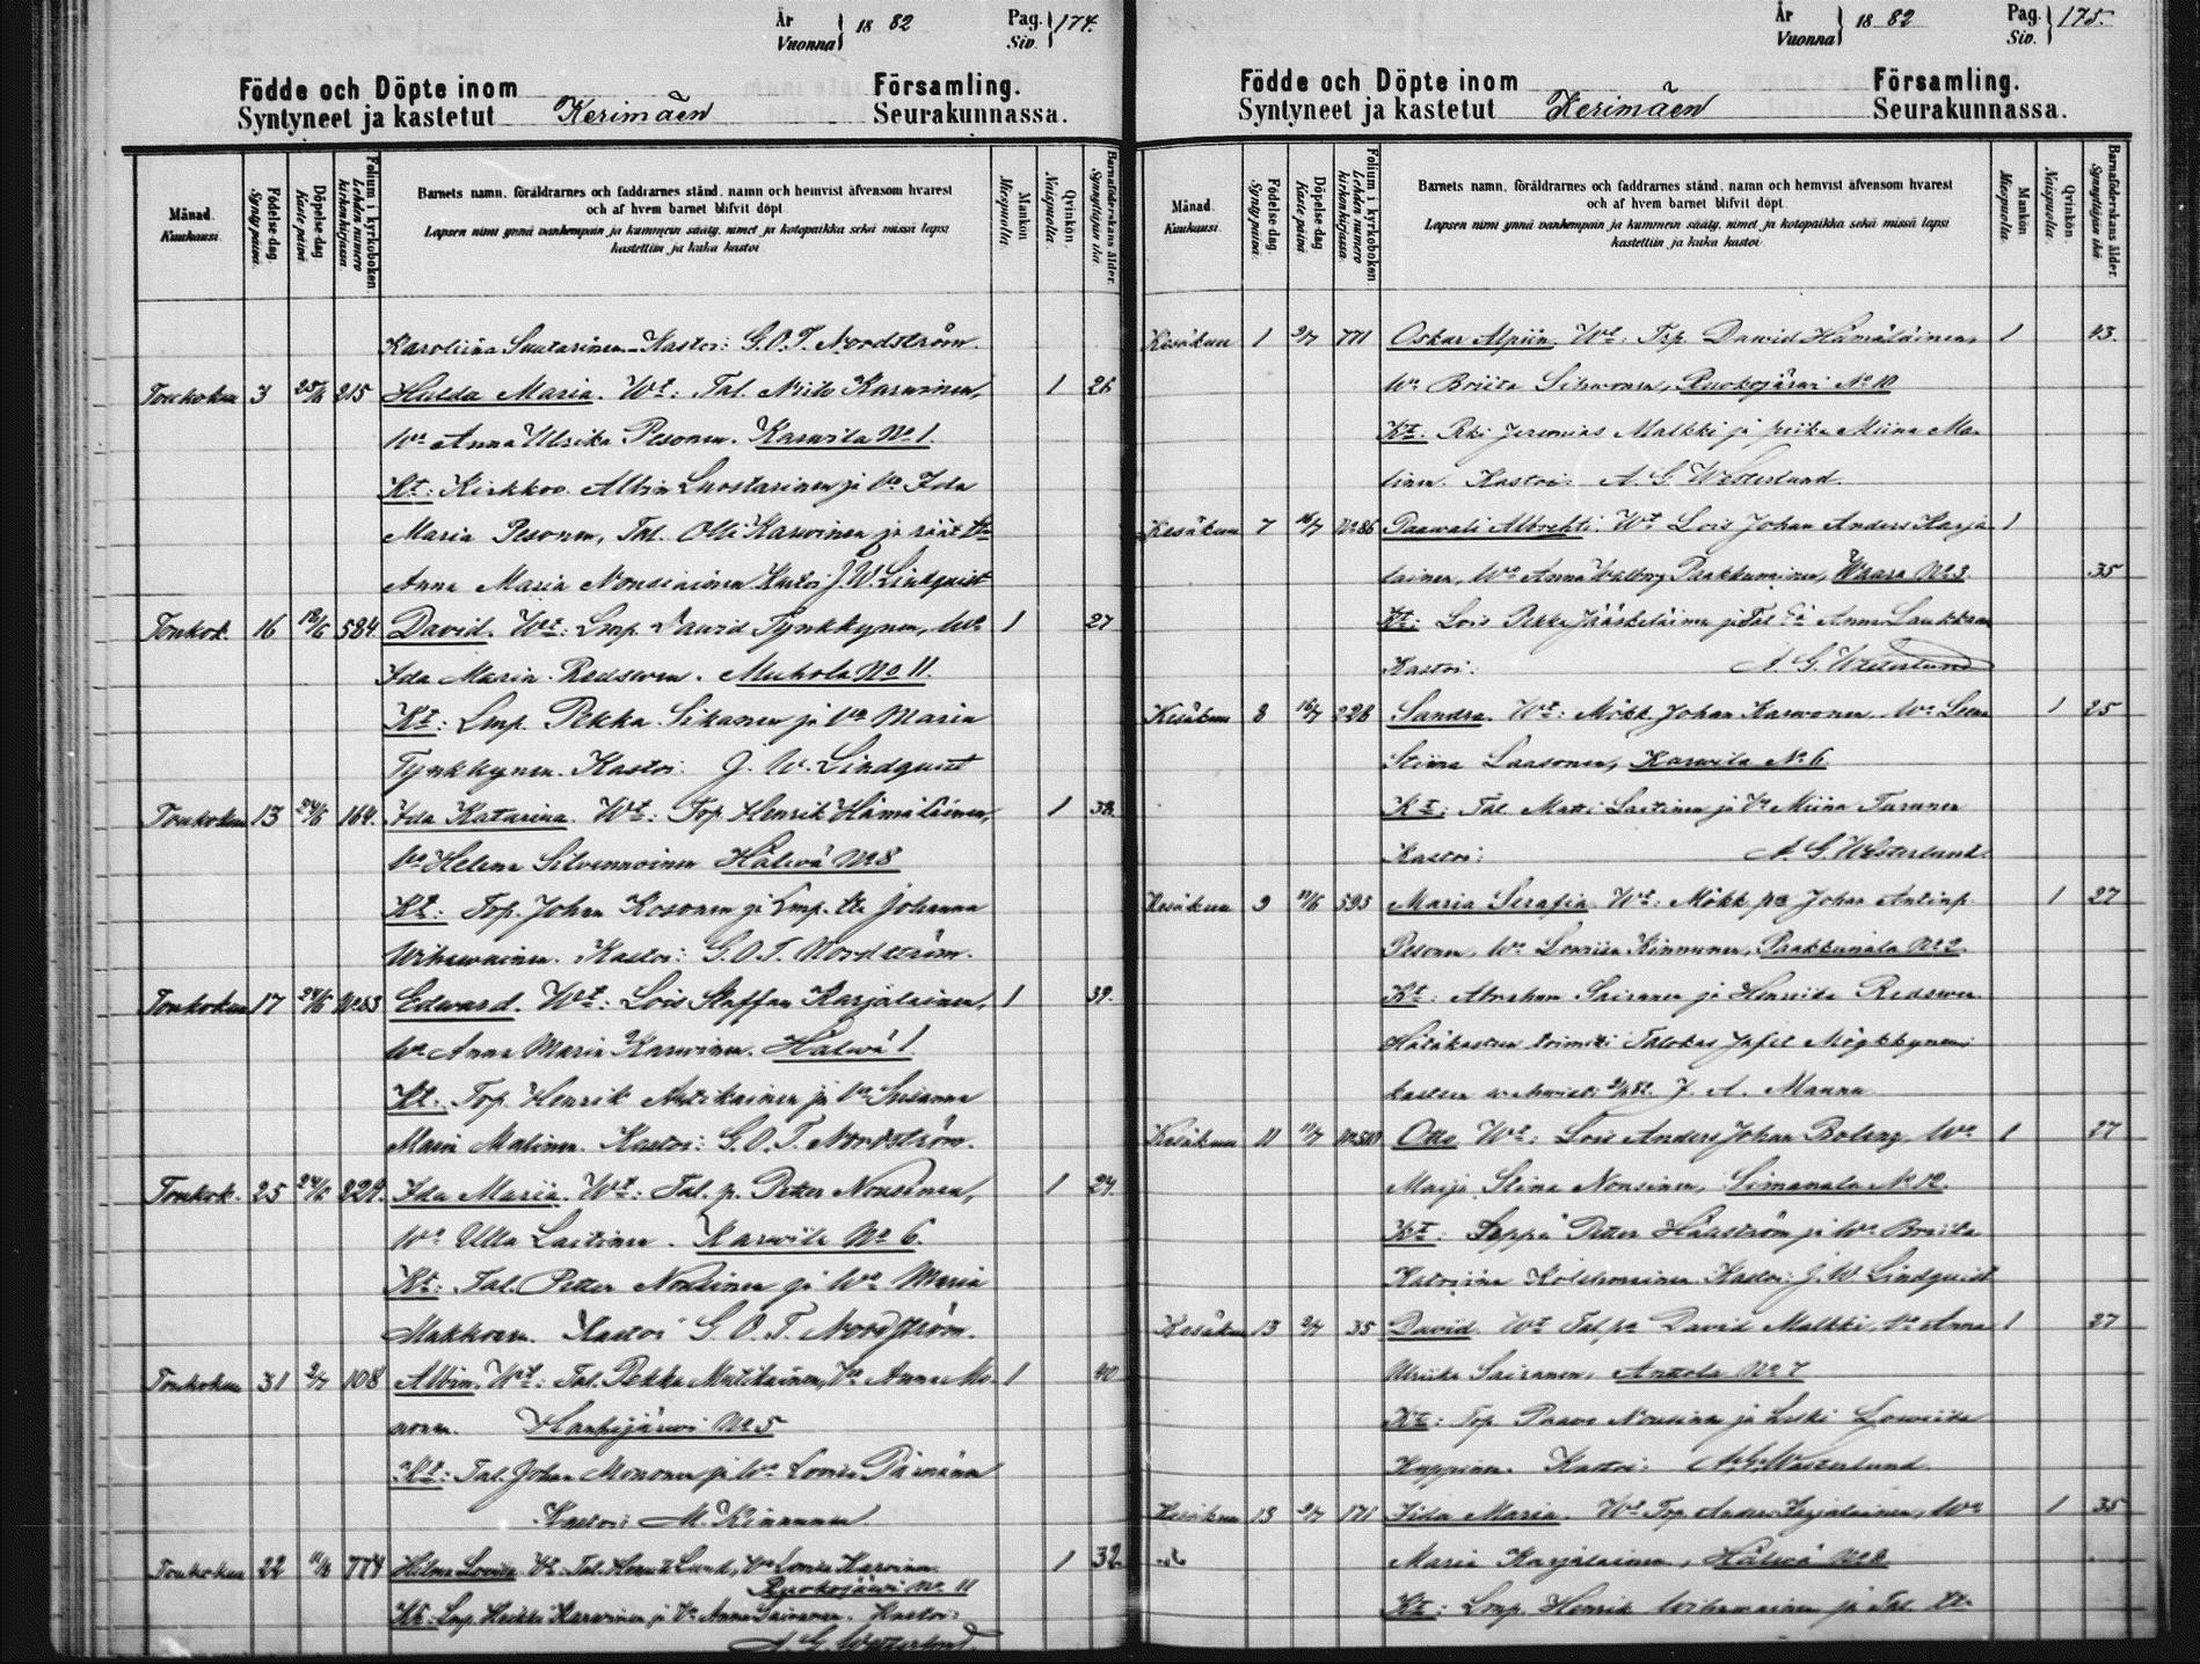 År
Vuonna } 18 82
Pag.
Siv. } 174.
Födde och Döpte inom
Syntyneet ja kastetut Kerimäen
Församling.
Seurakunnassa.
Månad.
Kuukausi.
Födelse dag.
Synty päivä.
Döpelse dag
Kaste päivä
Folium i kyrkoboken.
Lehden numero kirkonkirjassa
Barnets namn, föräldrarnes och faddrarnes stånd, namn och hemvist äfvensom hvarest
och af hvem barnet blifvit döpt.
Lapsen nimi ynnä vanhempain ja kummein sääty, nimet ja kotopaikka sekä missä lapsi
kastettiin ja kuka kastoi.
Mankön
Miespuolia.
Qvinkön.
Naispuolia.
Barnaföderskans ålder.
Synnyttäjän ikä
Karoliina Suutarinen. Kastoi: G. O. T. Nordström.
Toukokuu 3 25/6 215 Hulda Maria. Wt: Tal. Niilo Karvinen, 1 26
Wo Anna Ulrika Pesonen. Karvila No 1.
Kt: Kirkkov. Albin Luostarinen ja Vo Ida
Maria Pesonen, Tal. Olli Karvinen ja
Anna Maria Nousiainen Kastoi J. W. Lindquist
Toukok. 16 18/6 584 David. Wt: Lmp. David Tynkkynen, Wo 1 27
Ida Maria Redsven. Muhola No 11.
Kt: Lmp. Pekka Sikanen ja Vo Maria
Tynkkynen. Kastoi: J. W. Lindquist
Toukokuu 13 24/6 164. Ida Katarina. Wt: Top. Henrik Hämäläinen, 1 38.
Vo Helena Silvennoinen Hälvä No 8
Kt: Top. Johan Kosonen ja Lmp. Johanna
Wihavainen. Kastoi: G. O. T. Nordström.
Toukokuu 17 24/6 Edward. Wt: Lois Staffan Karjalainen, 1 39.
Wo Anna Maria Karvinen. Hälvä 1.
Kt: Top. Henrik Antikainen ja Vo Susanna
Maria Malinen. Kastoi: G. O. T. Nordström.
Toukok. 25 24/6 229. Ida Mariia. Wt: Tal. p. Petter Nousinen, 1 24.
Wo Ulla Laitinen. Karvila No 6.
Kt: Tal. Petter Nousinen ja Wo Maria
Makkonen. Kastoi G. O. T. Nordström.
Toukokuu 31 2/7 108 Albin. Wt: Tal. Pekka Mutikainen, Vo Anna Mo- 1 40
nonen. Hanhijärvi No 5
Kt: Tal. Johan Mononen ja Wo Lovisa
Kastoi: M. Kinnunen.
Toukokuu 22 774 Hilma Lovisa. Wt: Tal. Lund, Wo Lovisa Karvinen. 1 32
Ruokojärvi No 11
Kt: Lmp. Heikki Karvinen ja Vo Anna Sairanen. Kastoi:
A. G. Westerlund.
År
Vuonna } 18 82
Pag.
Siv. } 175.
Födde och Döpte inom
Syntyneet ja kastetut Kerimäen
Församling.
Seurakunnassa.
Månad.
Kuukausi.
Födelse dag.
Synty päivä.
Döpelse dag
Kaste päivä
Folium i kyrkoboken.
Lehden numero kirkonkirjassa.
Barnets namn, föräldrarnes och faddrarnes stånd, namn och hemvist äfvensom hvarest
och af hvem barnet blifvit döpt.
Lapsen nimi ynnä vanhempain ja kummein sääty, nimet ja kotopaikka sekä missä lapsi
kastettiin ja kuka kastoi.
Mankön
Miespuolia.
Qvinkön.
Naispuolia.
Barnaföderskans ålder.
Synnyttäjän ikä.
Kesäkuu 1 2/7 771 Oskar Alpiin. Wt: Top. David Hämäläinen, 1 43.
Wo Briita Sihvonen, Ruokojärvi No 10
Kt: Rki Jeremias Malkki ja piika Miina Ma-
linen. Kastoi: A. G. Westerlund.
Kesäkuu 7 16/7 No 86 Paavali Albrehti. Wt Lois Johan Anders Karja- 1
lainen, Wo Anna Walborg Paakkunainen, Waara No 3. 35
Kt: Lois Pekka Jääskeläinen ja Tal. Anna Laukkanen
Kastoi: A. G. Westerlund
Kesäkuu 8 16/7 226 Sandra. Wt: Mökk. Johan Karvonen, Wo Leena 1 25
Stiina Laasonen, Karvila No 6
Kt: Tal. Matti Laitinen ja Vo Miina Turunen
Kastoi: A. G. Westerlund.
Kesäkuu 9 11/6 595 Maria Serafia. Wt: Mökk. Johan Antinp. 1 27
Pesonen, Wo Loviisa Kinnunen, Paakkunala No 2.
Kt: Abraham Sairanen ja Henrika Redsven.
Hätäkasteen toimitti Talokas Jafet Mögkkynen;
kasteen vahvisti J. A. Mannu
Kesäkuu 11 Otto Wt: Lois Anders Johan Wo 1 27
Maija Stina Nousinen, Simanala No 12.
Kt: Seppä Petter Häggström ja Wo Briita
Katriina Kolehmainen. Kastoi: J. W. Lindquist
Kesäkuu 13 2/7 35 David Wt Tal. po David Malkki, Vo Anna 1 27
Ulriika Sairanen, Anttola No 7
Kt: Top. Paavo Nousinen ja Leski Loviisa
Kuppinen. Kastoi: A. G. Westerlund.
Kesäkuu 13 2/7 171 Iida Maria. Wt Top. Anders Karjalainen, Wo 1 35
Maria Karjalainen, Hälvä No 8.
Kt: Lmp. Henrik Wihavainen ja Tal.